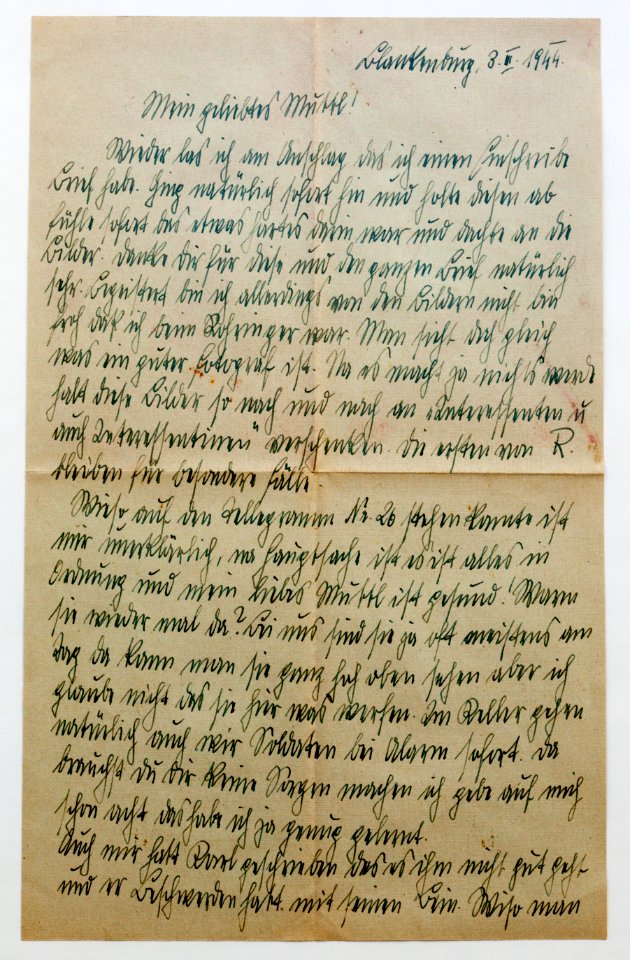 Blankenburg, 3.II.1944.
Mein geliebtes Muttl!
Wieder las ich am Anschlag das ich einen Einschreibe
Brief habe. Ging natürlich sofort hin und holte diesen ab
fühle sofort das etwas hartes darin war und dachte an die
Bilder. Danke dir für diese und den ganzen Brief natürlich
sehr. Begeistert bin ich allerdings von den Bildern nicht bin
froh daß ich beim Rohringer war. Man sieht doch gleich
was ein guter Fotograf ist. Na es macht ja nichts werde
halt diese Bilder so nach und nach an "Interessenten u
auch Interessentinen" verschenken. Die ersten von R.
bleiben für besondere Fälle.
Wieso auf den Tellegramm Nr. 26 stehen konnte ist
mir unerklärlich, na Hauptsache ist es ist alles in
Ordnung und mein liebes Muttl ist gesund! Warn
sie wieder mal da? Bei uns sind sie ja oft meistens am
Tag da kann man sie ganz hoch oben sehen aber ich
glaube nicht das sie hier was werfen. Im Keller gehen
natürlich auch wir Soldaten bei Alarm sofort. Da
brauchst du dir keine Sorgen machen ich gebe auf mich
schon acht das habe ich ja genug gelernt.
Auch mir hatt Karl geschrieben das es ihm nicht gut geht
und er Beschwerden hatt mit seinen Bein. Wiso man